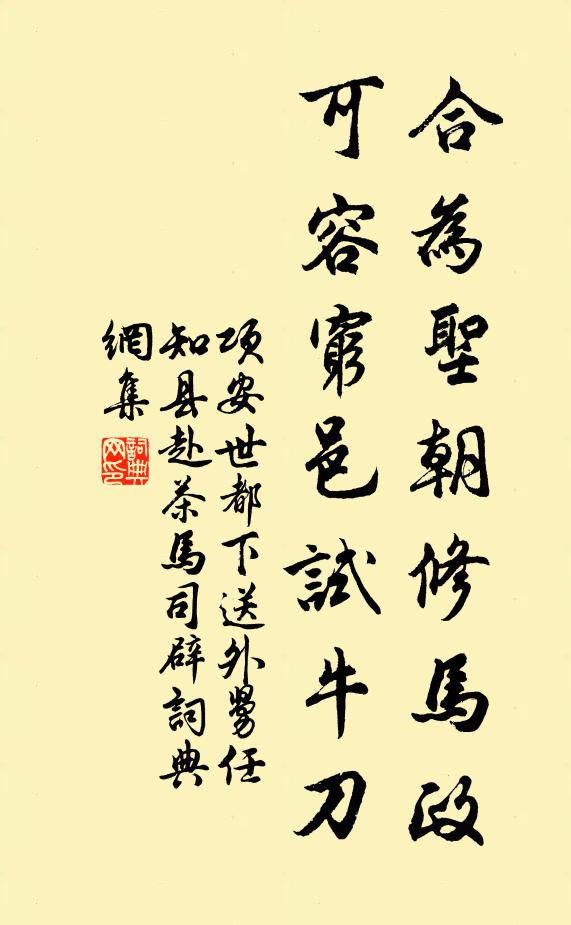 合為聖朝修馬政
可容窮邑試牛刀
項安世都下送外舅任
知县赴茶馬司辟詞典
網集
詞典網印